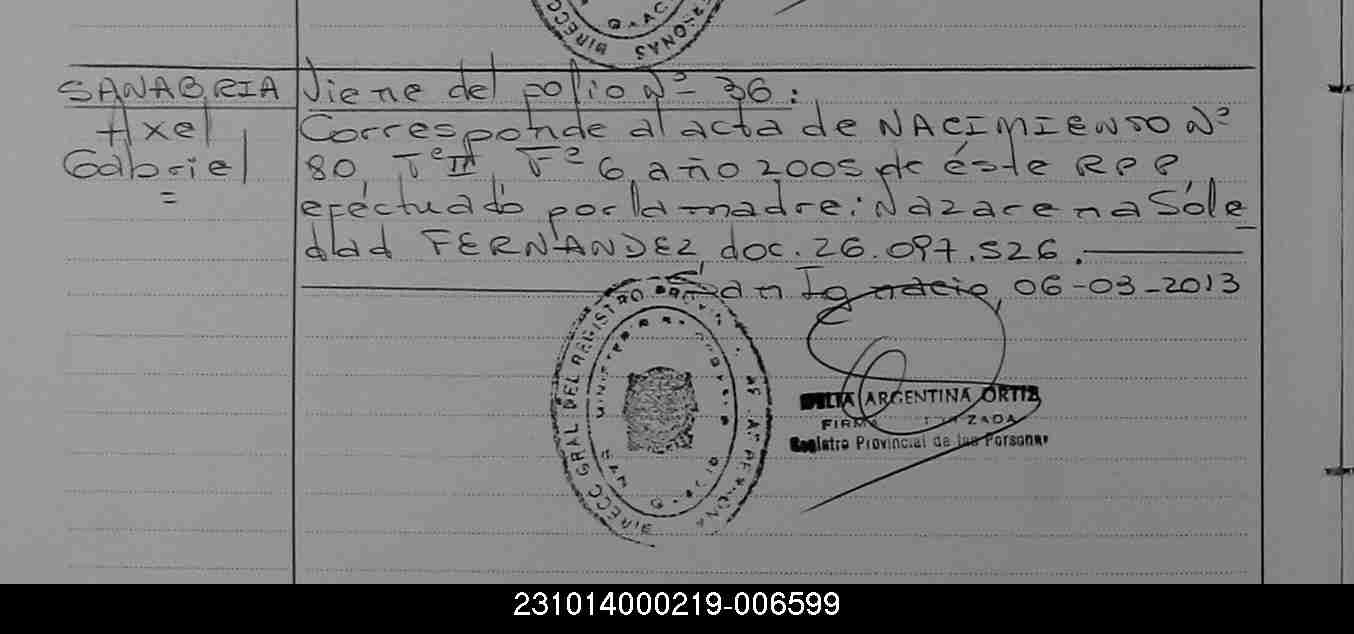 SANABRIA
Axel
Gabriel
=
Viene del folio Nº 36:
Corresponde al acta de NACIMIENTO Nº
80, Tº III, Fº 6, año 2005 de éste RPP
efectuado por la madre: Nazarena Sole
dad FERNANDEZ, doc. 26.097.526.
San Ignacio, 06-03-2013
DIRECC GRAL DEL REGISTRO
ARGENTINA ORTIZ
FIRMA
Registro Provincial de las Personas
231014000219-006599